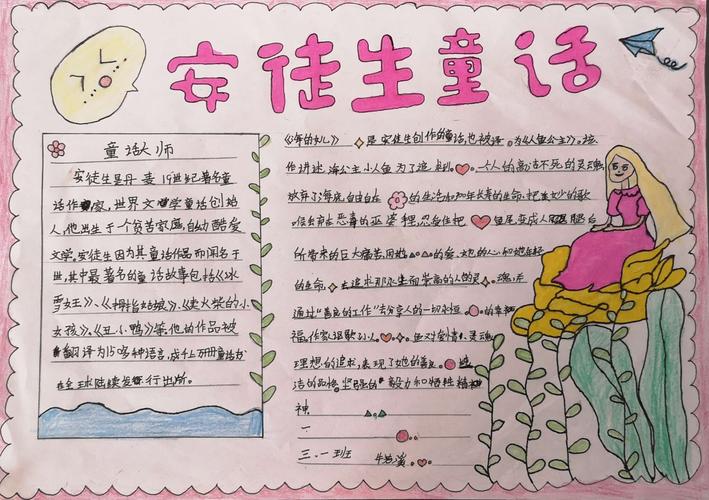 安徒生童话
童话大师
安徒生是丹麦19世纪著名童
话作家,世界文学童话创始
人,他出生于一个贫苦家庭,自幼酷爱
文学,安徒生因为其童话作品而闻名于
世,其中最著名的童话故事包括《冰
雪女王》、《拇指姑娘》、《卖火柴的小
女孩》、《丑小鸭》等他的作品被
翻译为150多种语言,成千上万册童话书
在全球陆续发行出版。
《海的女儿》是安徒生创作的童话,也被译为《人鱼公主》。该
作讲述海公主小人鱼为了追求一个人的高洁不死的灵魂,
放弃了海底自由自在的生活和300年长寿的生命,把美妙的歌
喉
恶毒的巫婆
忍受住把鱼尾变成人腿后
所带来的巨大痛苦,用她的爱、她的心和她年轻
的生命去追求那永生而崇高的人的灵魂,
通过“善良的工作”去分享人的一切永恒的幸
福,作家讴歌小人鱼对爱情、灵魂、
理想的追求,表现了她的善良
洁的品格、坚强的毅力和牺牲精神
神
一
三、一班